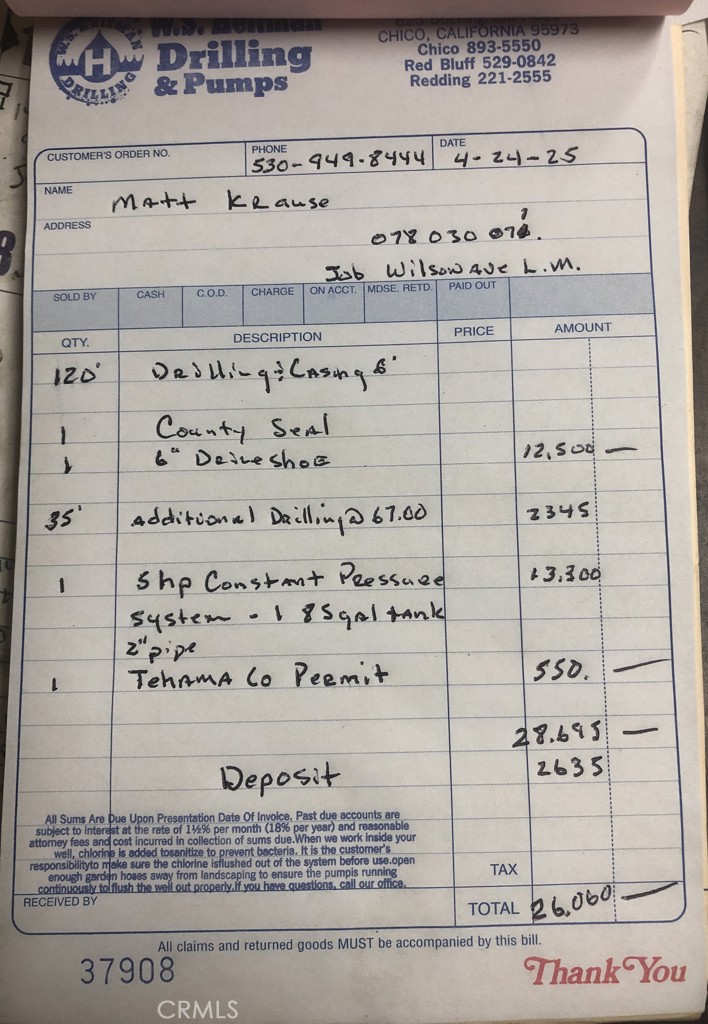 W.S. Heitman
Drilling
& Pumps
W.S. HEITMAN
H
DRILLING
CHICO, CALIFORNIA 95973
Chico 893-5550
Red Bluff 529-0842
Redding 221-2555
CUSTOMER'S ORDER NO.
PHONE
530-949-8444
DATE
4-24-25
NAME
Matt Krause
ADDRESS
078 030 071.
Job Wilson Ave L.M.
SOLD BY CASH C.O.D. CHARGE ON ACCT. MDSE. RETD. PAID OUT
QTY. DESCRIPTION PRICE AMOUNT
120' Drilling & Casing 6"
1 County Seal
1 6" Driveshoe 12,500 —
35' Additional Drilling @ 67.00 2345
1 5hp Constant Pressure 13,300
System - 1 85gal tank
2" pipe
1 Tehama Co Permit 550. —
28.695 —
Deposit 2635
All Sums Are Due Upon Presentation Date Of Invoice. Past due accounts are
subject to interest at the rate of 1½% per month (18% per year) and reasonable
attorney fees and cost incurred in collection of sums due.When we work inside your
well, chlorine is added tosanitize to prevent bacteria. It is the customer's
responsibilityto make sure the chlorine isflushed out of the system before use.open
enough garden hoses away from landscaping to ensure the pumpis running
continuously to flush the well out properly.If you have questions, call our office.
TAX
RECEIVED BY
TOTAL 26,060 —
All claims and returned goods MUST be accompanied by this bill.
37908
Thank You
CRMLS